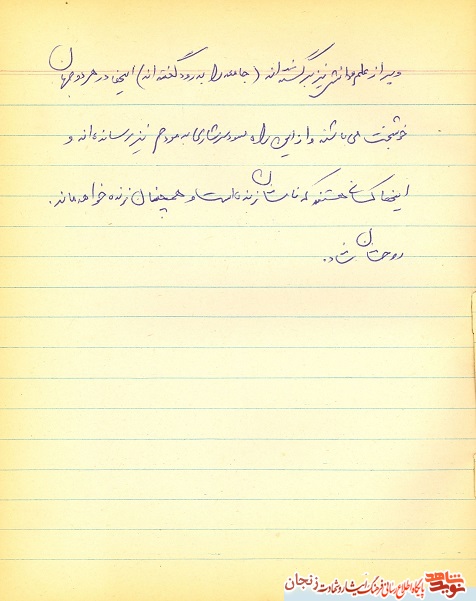 و پس از علم و دانش نیز برگشته اند (جامعه را بدرود گفته اند) اینها در هر دو جهان
خوشبخت می باشند و از این راه سود سرشاری به مردم نیز رسانده اند و
اینها کسانی هستند که نامشان زنده است و همچنان زنده خواهد ماند.
روحشان شاد.
نوید شاهد
پایگاه اطلاع رسانی فرهنگ ایثار و شهادت زنجان